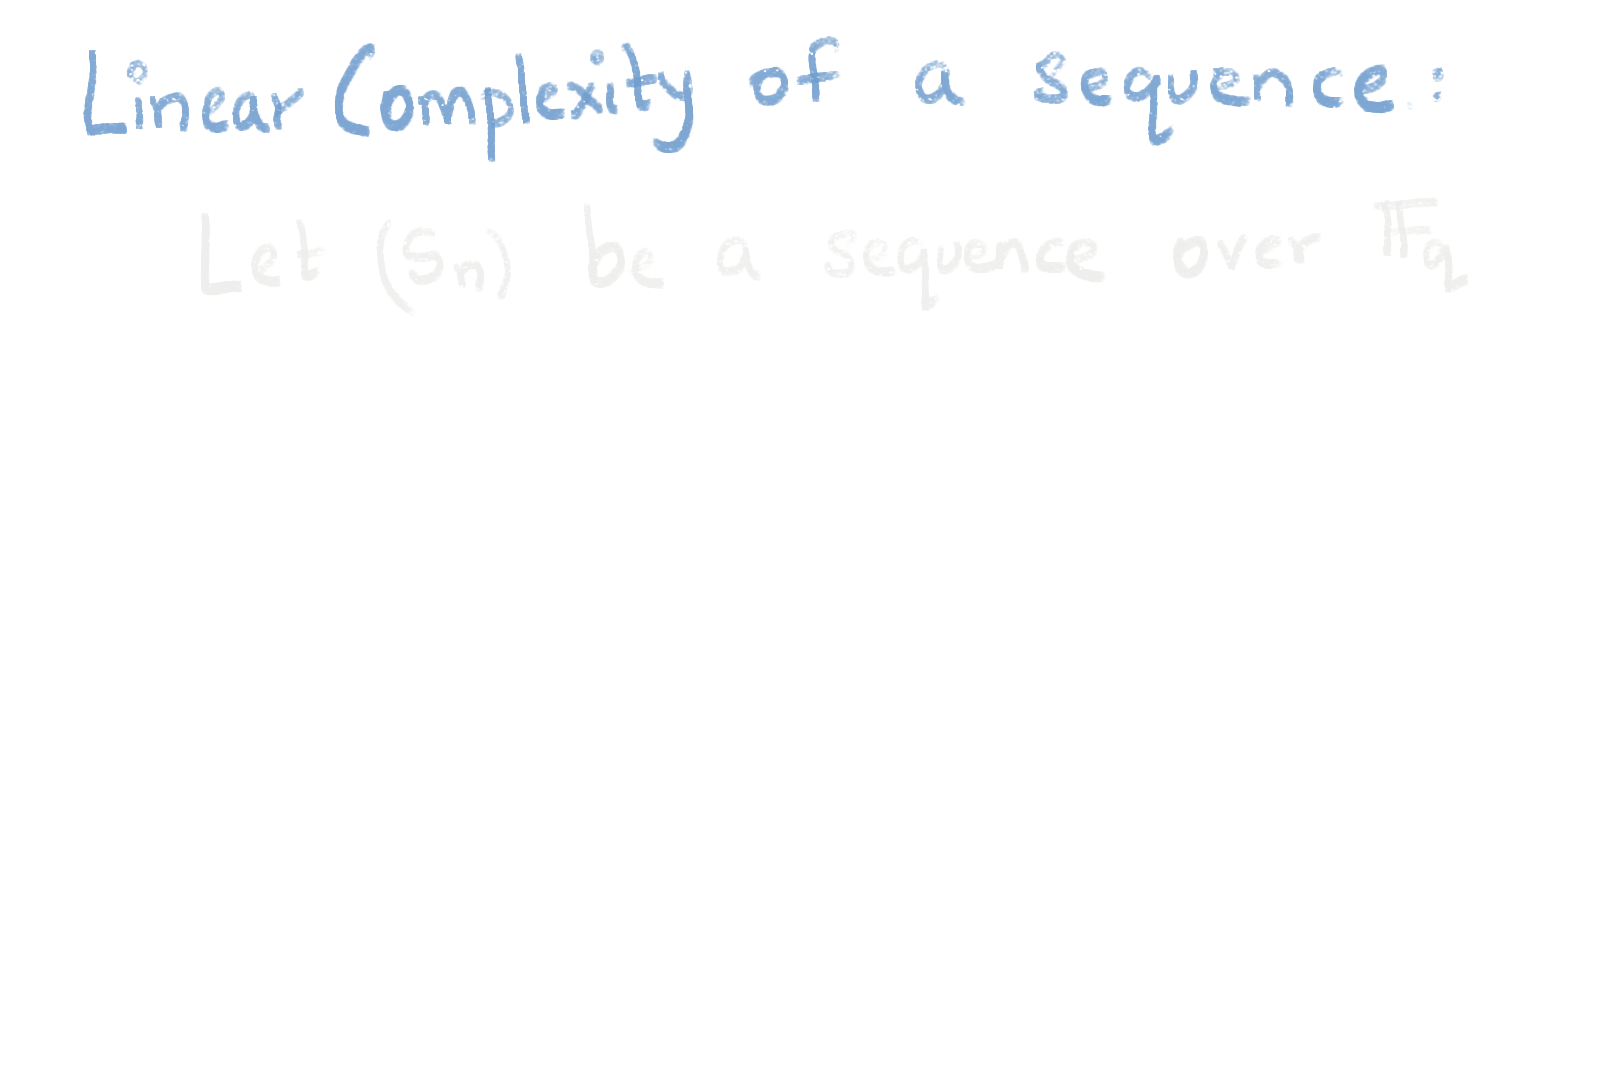 Linear Complexity of a sequence:
Let (Sₙ) be a sequence over 𝔽q